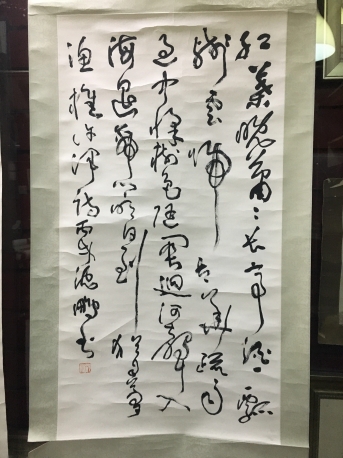 紅葉晚蕭〻長亭酒一瓢
殘雲歸太華疏雨
過中條樹色隨關迥河聲入
海遥帝鄉明日到猶自夢
漁樵許渾詩鵬書